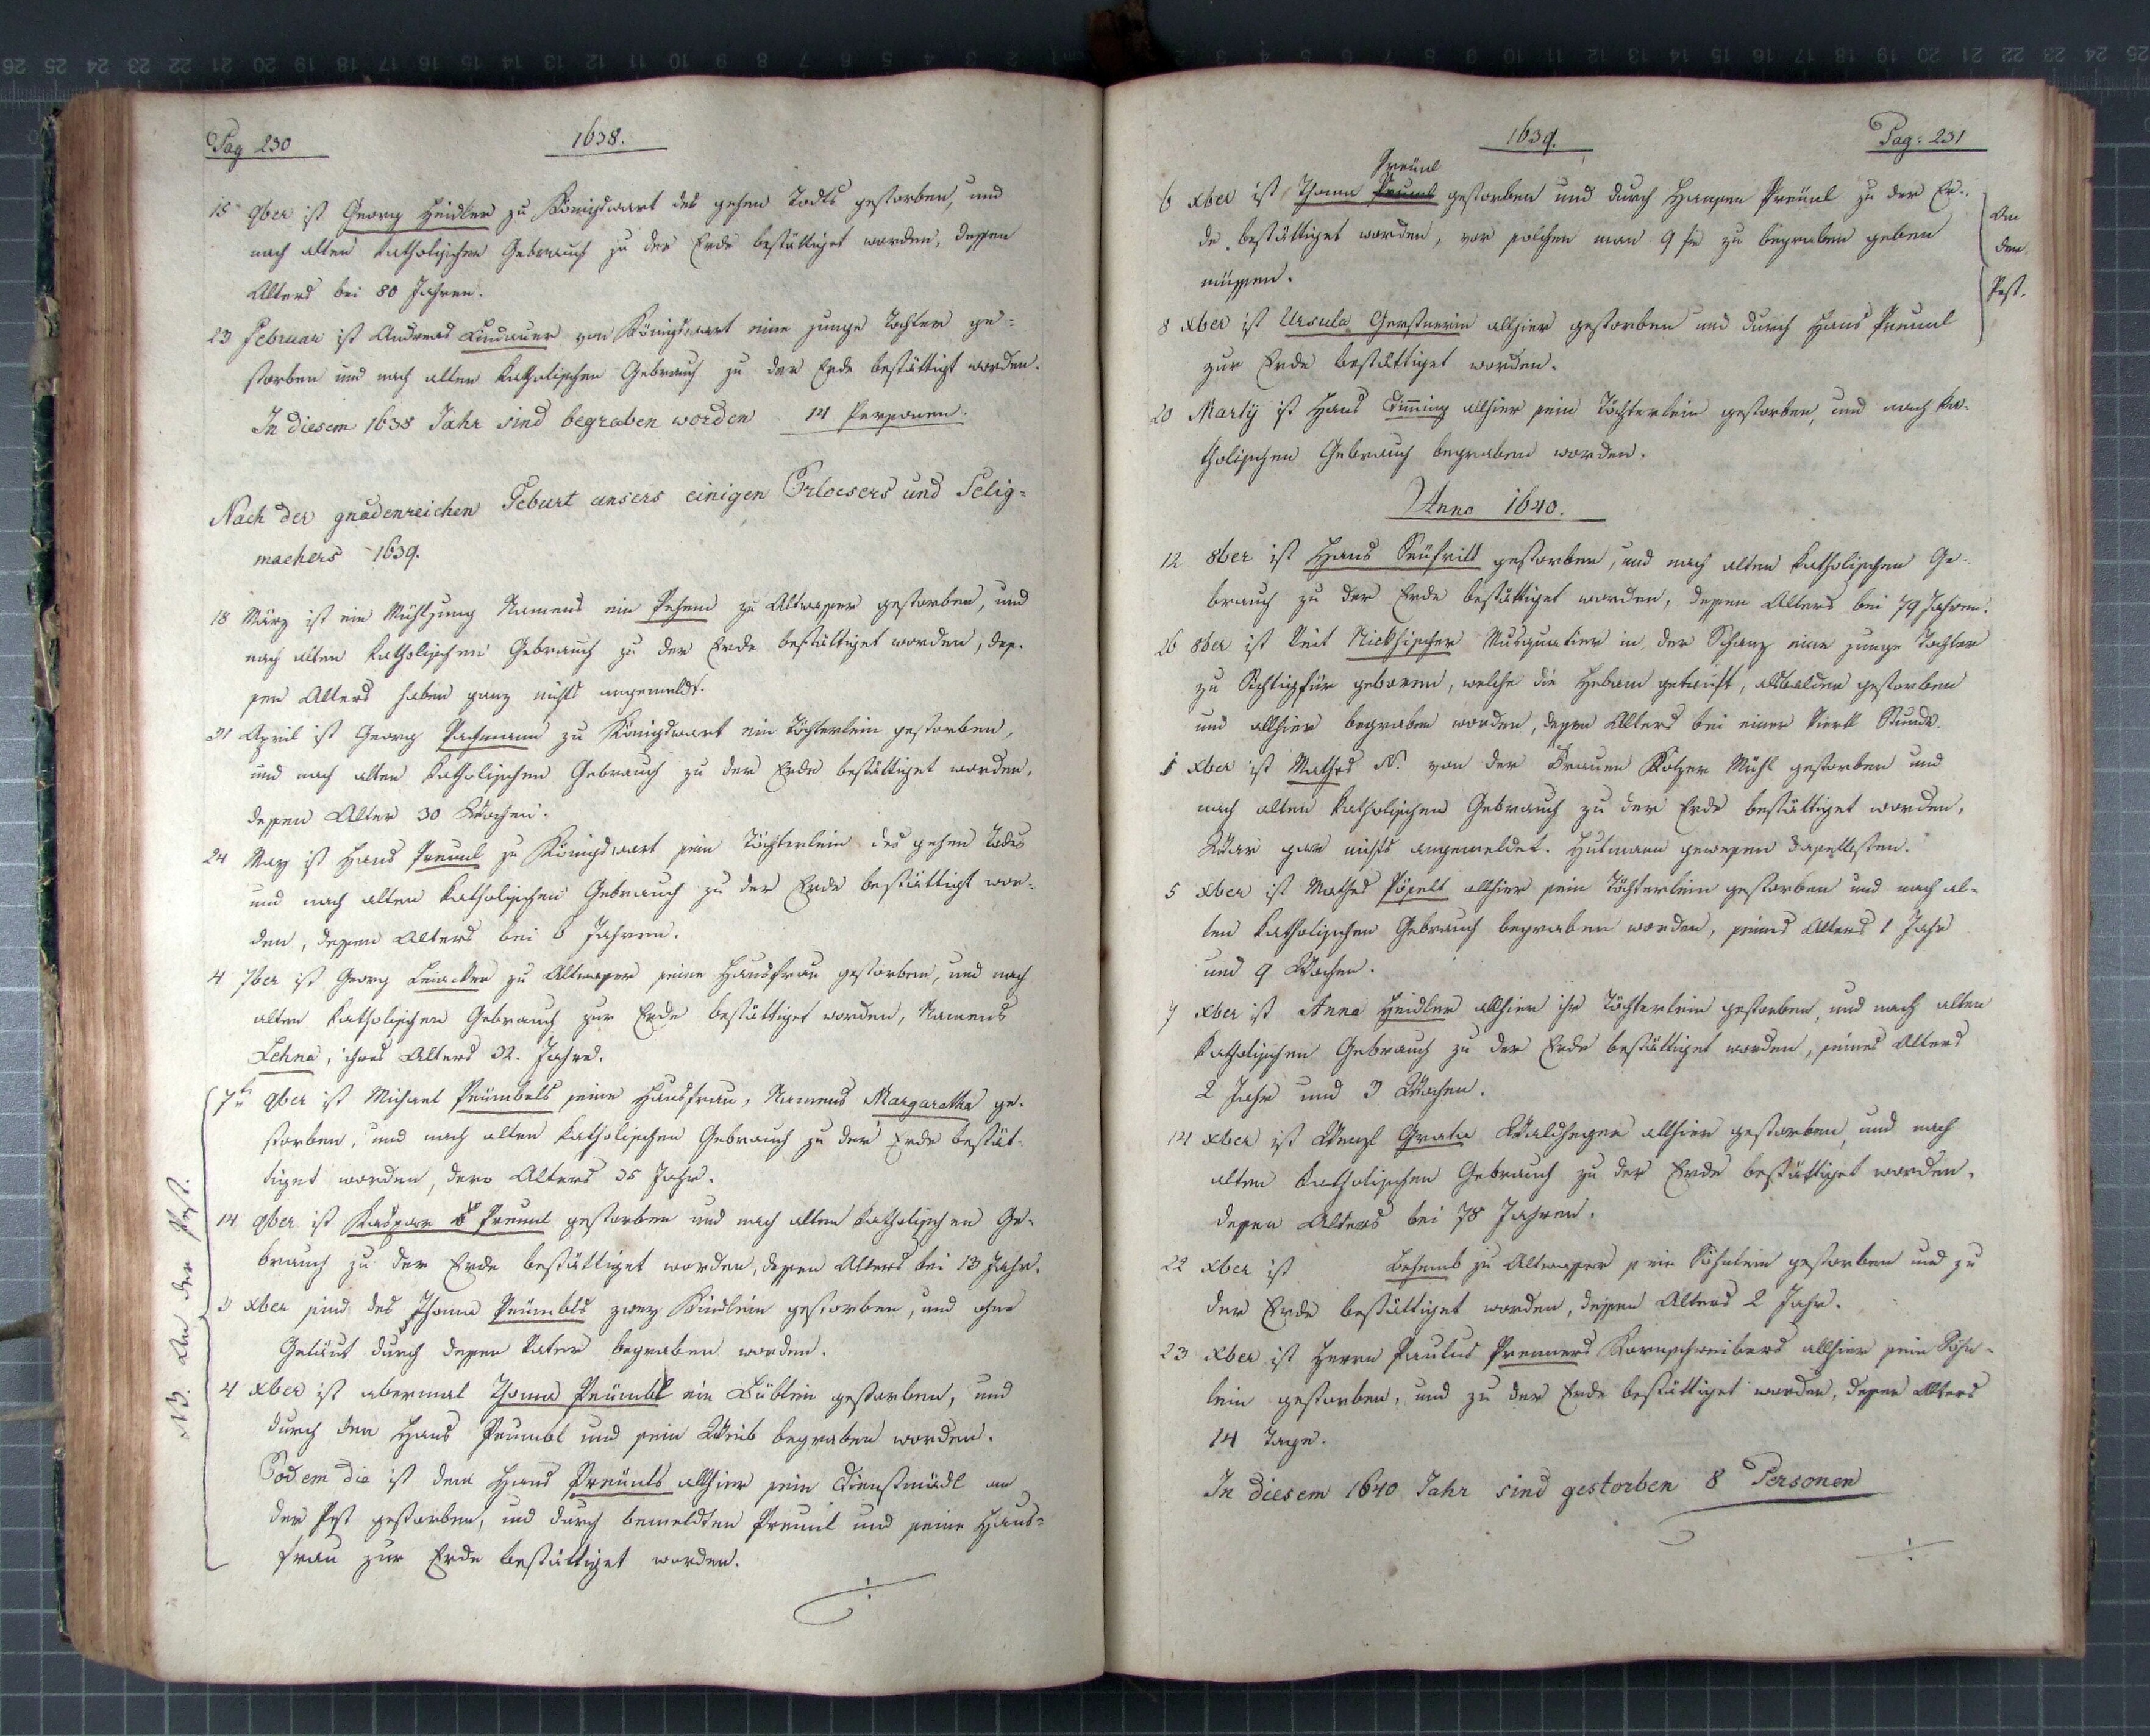 Pag 230
1638.
15 9ber ist Georg Heidler zu Königswart des gehen Todts gestorben, und
nach alten katholischen Gebrauch zu der Erde bestättiget worden, dessen
Alters bei 80 Jahren.
23 Februar ist Andreas Lindauer von Königswart eine junge Tochter ge-
storben und nach alten katholischen Gebrauch zu der Erde bestättigt worden.
In diesem 1638 Jahr sind begraben worden 14 Personen.
Nach der gnadenreichen Geburt unsers einigen Erloesers und Selig-
machers 1639.
18 März ist ein Mühljung Namens ein zu Altwasser gestorben, und
nach alten katholischen Gebrauch zu der Erde bestättiget worden, des-
sen Alters haben ganz nichts angemeldt.
31 April ist Georg Pachmann zu Königswart ein Töchterlein gestorben,
und nach alten katholischen Gebrauch zu der Erde bestättiget worden,
dessen Alter 30 Wochen.
24 May ist Hans Preuml zu Königswart sein Töchterlein des gehen Todes
und nach alten katholischen Gebrauch zu der Erde bestättigt wor-
den, dessen Alters bei 6 Jahren.
4 7ber ist Georg zu Altwasser seine Hausfrau gestorben, und nach
alten katholischen Gebrauch zur Erde bestättiget worden, Namens
Lehna, ihres Alters 32. Jahre.
7tn 9ber ist Michael Preümbels seine Hausfrau, Namens Margaretha ge-
storben, und nach alten katholischen Gebrauch zu der Erde bestät-
tiget worden, dero Alters 35 Jahr.
14 9ber ist Kaspar Preuml gestorben und nach alten katholischen Ge-
brauch zu der Erde bestättiget worden, dessen Alters bei 13 Jahr.
3 xber sind des Thoma Preümbls zwey Kindlein gestorben, und ohne
Geläut durch dessen Vater begraben worden.
4 xber ist abermal Thoma Preümbl ein Büblein gestorben, und
durch den Hans Preumbl und sein Weib begraben worden.
Eodem die ist dem Hans Preümls allhier sein Dienstmädl an
der Pest gestorben, und durch bemeldten Preuml und seine Haus-
frau zur Erde bestättiget worden.
NB. An der Pest.
1639.
Pag: 231
Preüml
6 xber ist Thoma Preuml gestorben und durch Hansen Preüml zu der Er-
de bestättiget worden, vor solchen man 9 fr zu begraben geben
müssen.
8 xber ist Ursula Gerstnerin allhier gestorben und durch Hans Preuml
zur Erde bestättiget worden.
An
der
Pest.
20 Martÿ ist Hans allhier sein Töchterlein gestorben, und nach ka-
tholischen Gebrauch begraben worden.
Anno 1640.
12 8ber ist Hans Seüfritt gestorben, und nach alten katholischen Ge-
brauch zu der Erde bestättiget worden, dessen Alters bei 79 Jahren.
26 8ber ist Veit Musquatier in der Schanz eine junge Tochter
zu Sichtigfür geboren, welche die Hebam getauft, alsbalden gestorben
und allhier begraben worden, dessen Alters bei einer Viertl Stunde.
1 xber ist Mathes N. von der Mühl gestorben und
nach alten katholischen Gebrauch zu der Erde bestättiget worden,
War gar nichts angemeldet. Hutmann gewesen daselbsten.
5 xber ist Mathes Pöpelt allhier sein Töchterlein gestorben und nach al-
ten katholischen Gebrauch begraben worden, seines Alters 1 Jahr
und 9 Wochen.
7 xber ist Anna Heidler allhier ihr Töchterlein gestorben, und nach alten
katholischen Gebrauch zu der Erde bestättiget worden, seines Alters
2 Jahr und 3 Wochen.
14 xber ist Wenzl Waldheger allhier gestorben, und nach
alten katholischen Gebrauch zu der Erde bestättiget worden,
dessen Alters bei 78 Jahren.
22 xber ist Lehembs zu Altwasser sein Söhnlein gestorben und zu
der Erde bestättiget worden, dessen Alters 2 Jahr.
23 xber ist Herrn Paulus Prenners Kornschreibers allhier sein Söhn-
lein gestorben, und zu der Erde bestättiget worden, dessen Alters
14 Tage.
In diesem 1640 Jahr sind gestorben 8 Personen